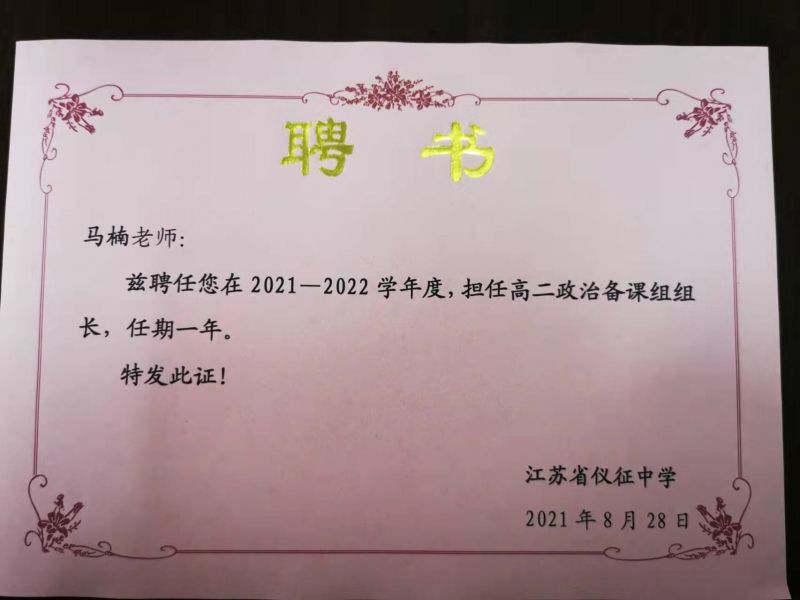 聘 书
马楠老师：
兹聘任您在 2021—2022 学年度，担任高二政治备课组组
长，任期一年。
特发此证！
江苏省仪征中学
2021 年 8 月 28 日